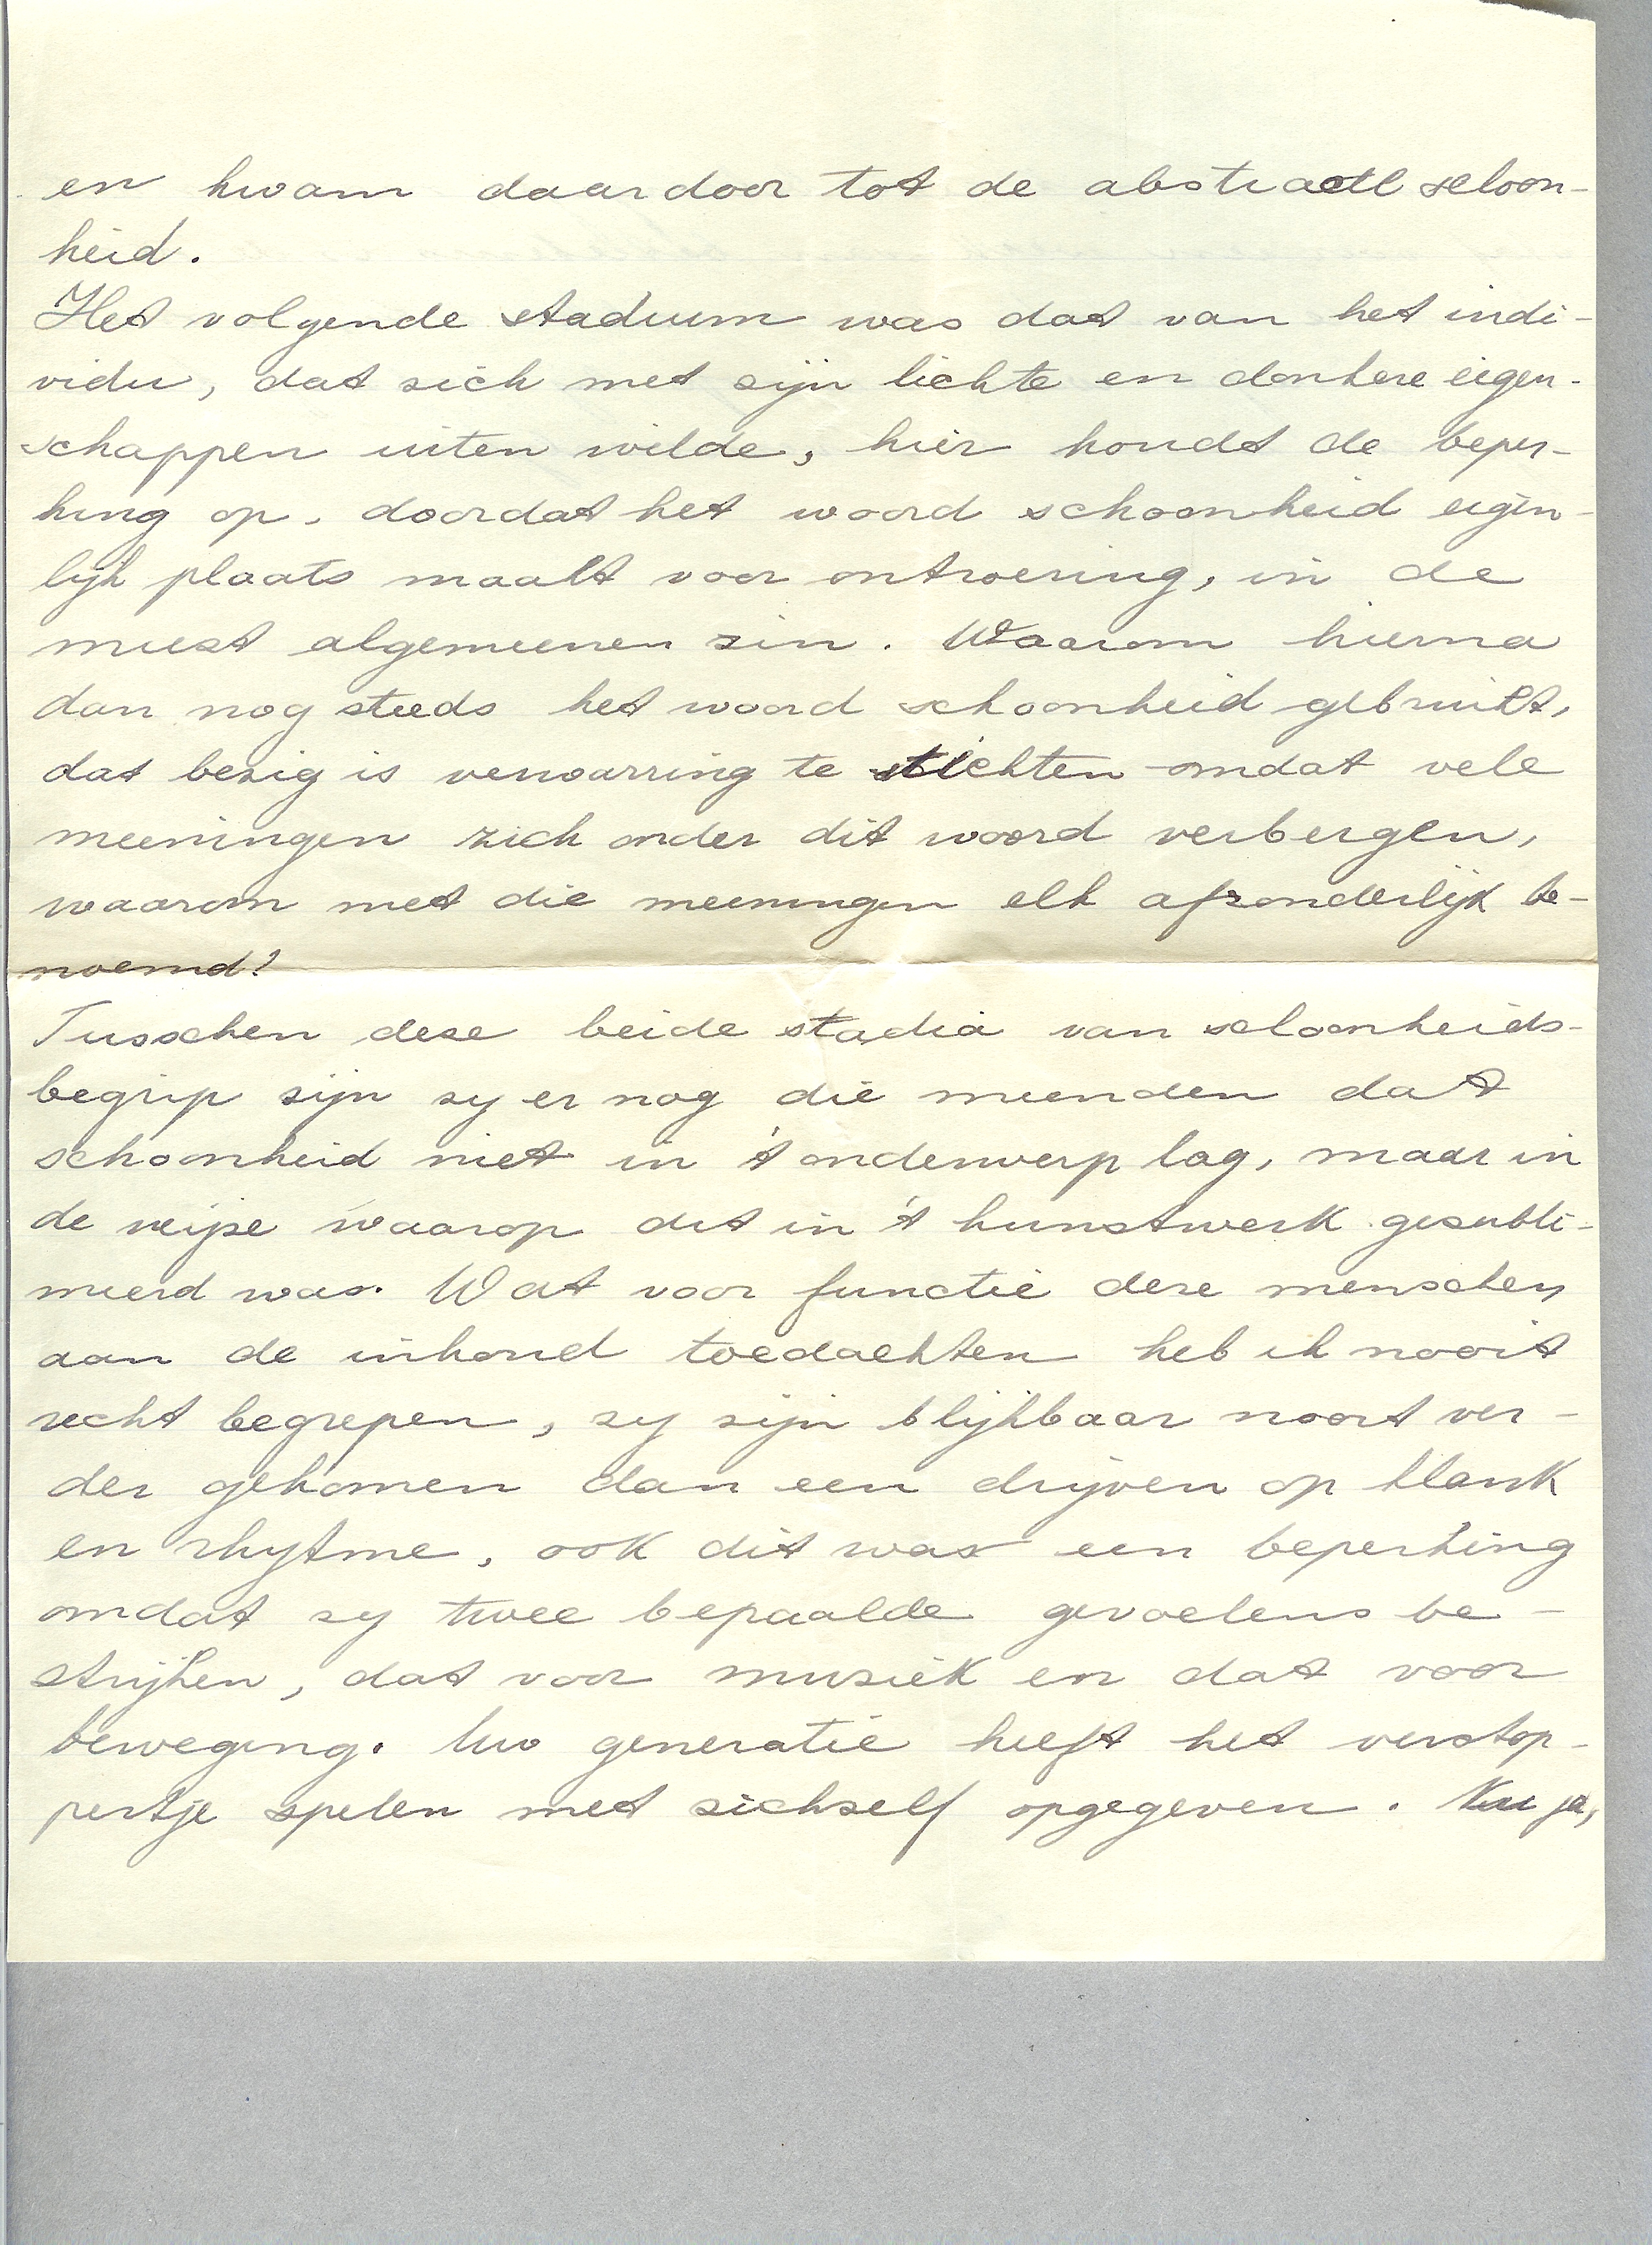 en kwam daardoor tot de abstracte schoon-
heid.
Het volgende stadium was dat van het indi-
vidu, dat zich met zijn lichte en donkere eigen-
schappen uiten wilde, hier houdt de beper-
king op, doordat het woord schoonheid eigen-
lijk plaats maakt voor ontroering, in de
meest algemeenen zin. Waarom hierna
dan nog steeds het woord schoonheid gebruikt,
dat bezig is verwarring te stichten omdat vele
meeningen zich onder dit woord verbergen,
waarom niet die meeningen elk afzonderlijk be-
noemd?
Tusschen deze beide stadia van schoonheids-
begrip zijn zy er nog die meenden dat
schoonheid niet in 't onderwerp lag, maar in
de wijze waarop dit in 't kunstwerk gesubli-
meerd was. Wat voor functie deze menschen
aan de inhoud toedachten heb ik nooit
recht begrepen, zy zijn blijkbaar nooit ver-
der gekomen dan een drijven op klank
en rhytme, ook dit was een beperking
omdat zy twee bepaalde gevoelens be-
strijken, dat voor muziek en dat voor
beweging. Uw generatie heeft het verstop-
pertje spelen met zichself opgegeven. Nu ja,